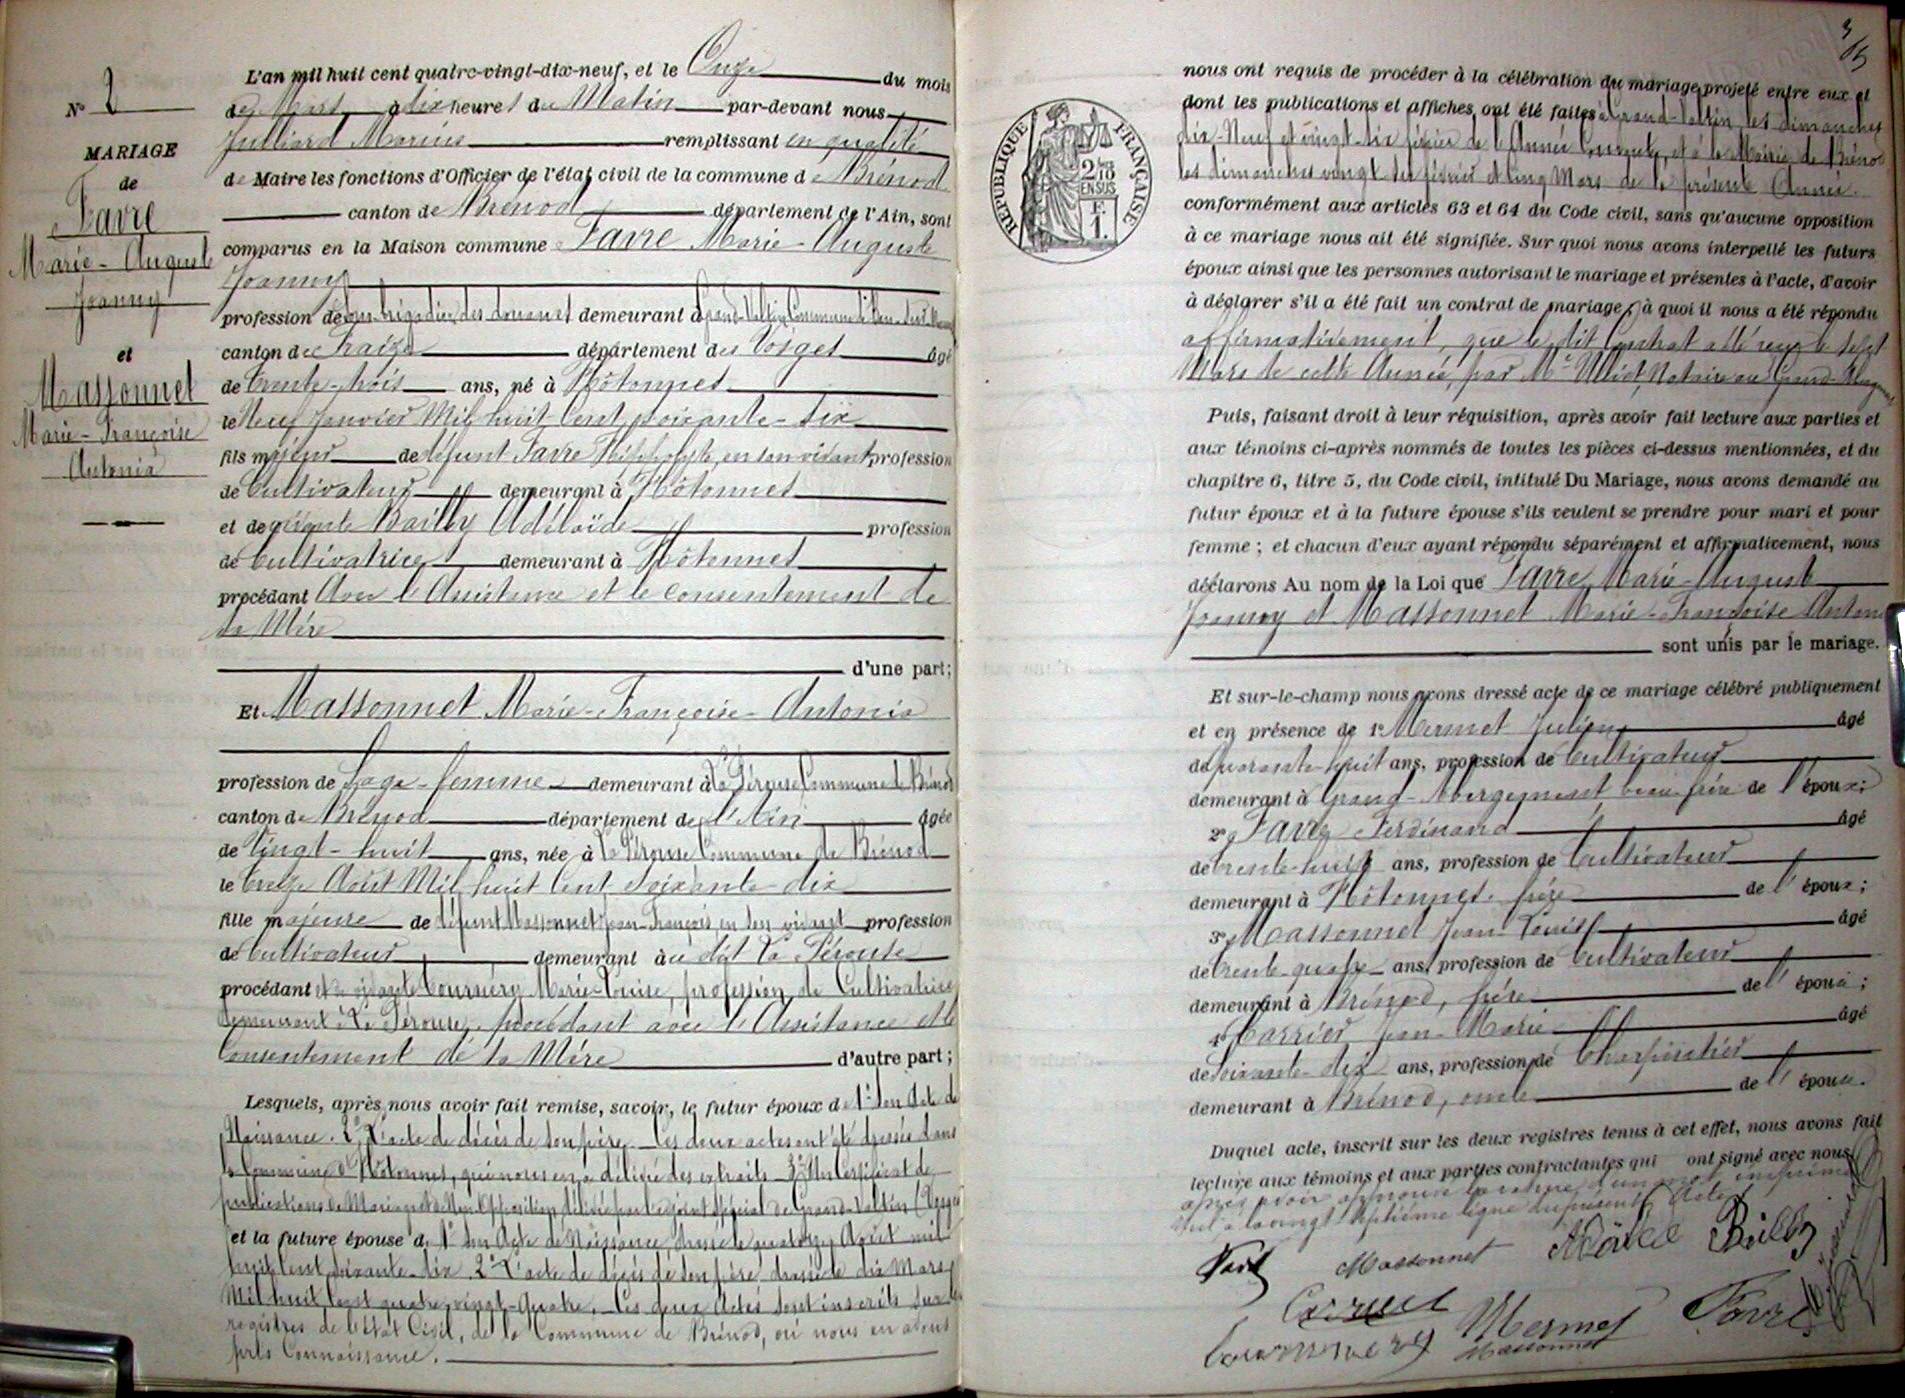 L'an mil huit cent quatre-vingt-dix-neuf, et le Onze du mois
de Mars à dix heures du Matin par-devant nous
Julliard Marius remplissant en qualité
de Maire les fonctions d'Officier de l'état civil de la commune de Brénod
canton de Brénod département de l'Ain, sont
comparus en la Maison commune Favre Marie-Auguste
Joanny
profession de sous-brigadier des douanes demeurant à Grand-Valtin Commune de
canton de Fraize département des Vosges âgé
de trente-trois ans, né à Hôtonnes
le Neuf Janvier Mil huit Cent soixante-six
fils majeur de défunt Favre Hippolyte, en son vivant profession
de Cultivateur demeurant à Hôtonnes
et de vivante Bailly Adélaïde profession
de Cultivatrice demeurant à Hôtonnes
procédant Avec l'Assistance et le Consentement de
sa Mère
d'une part;
Et Massonnet Marie-Françoise-Antonia
profession de Sage-femme demeurant à La Pérouse Commune de Brénod
canton de Brénod département de l'Ain âgée
de Vingt-huit ans, née à La Pérouse Commune de Brénod
le treize Août Mil huit Cent Soixante-dix
fille majeure de défunt Massonnet Jean-François en son vivant profession
de Cultivateur demeurant au dit La Pérouse
procédant et de vivante Tournéry Marie-Louise, profession de Cultivatrice
demeurant à La Pérouse, procédant avec l'Assistance et le
Consentement de sa Mère d'autre part;
Lesquels, après nous avoir fait remise, savoir, le futur époux de 1° Son Acte de
Naissance. 2° L'acte de décès de son père. Ces deux actes ont été dressés dans
la Commune d'Hôtonnes, qui nous en a délivré des extraits. 3° Un Certificat de
publications de Mariage et de Non Opposition délivré par l'adjoint spécial de Grand-Valtin (Vosges
et la future épouse de 1° Son Acte de Naissance, dressé le quatorze Août mil
huit Cent soixante-dix. 2° L'acte de décès de son père dressé le dix Mars
Mil huit Cent quatre-vingt-quatre. Ces deux Actes sont inscrits sur les
registres de l'Etat Civil, de la Commune de Brénod, où nous en avons
pris Connaissance.
N° 2
MARIAGE
de
Favre
Marie-Auguste
Joanny
et
Massonnet
Marie-Françoise
Antonia
RÉPUBLIQUE FRANÇAISE
2/10
EN SUS
F.
1.
nous ont requis de procéder à la célébration du mariage projeté entre eux et
dont les publications et affiches ont été faites à Grand-Valtin les dimanches
dix-Neuf et vingt-six février de l'Année Courante, et à la Mairie de Brénod
les dimanches vingt-six février et Cinq Mars de la présente Année.
conformément aux articles 63 et 64 du Code civil, sans qu'aucune opposition
à ce mariage nous ait été signifiée. Sur quoi nous avons interpellé les futurs
époux ainsi que les personnes autorisant le mariage et présentes à l'acte, d'avoir
à déclarer s'il a été fait un contrat de mariage, à quoi il nous a été répondu
affirmativement, que le dit Contrat a été reçu le Sept
Mars de cette Année, par Me Notaire au Grand-
Puis, faisant droit à leur réquisition, après avoir fait lecture aux parties et
aux témoins ci-après nommés de toutes les pièces ci-dessus mentionnées, et du
chapitre 6, titre 5, du Code civil, intitulé Du Mariage, nous avons demandé au
futur époux et à la future épouse s'ils veulent se prendre pour mari et pour
femme ; et chacun d'eux ayant répondu séparément et affirmativement, nous
déclarons Au nom de la Loi que Favre Marie-Auguste
Joanny et Massonnet Marie-Françoise Antonia
sont unis par le mariage.
Et sur-le-champ nous avons dressé acte de ce mariage célébré publiquement
et en présence de 1° Mermet Julien âgé
de quarante-huit ans, profession de Cultivateur
demeurant à Grand-Abergement beau-frère de l'époux;
2° Favre Ferdinand âgé
de trente-huit ans, profession de Cultivateur
demeurant à Hôtonnes, frère de l'époux;
3° Massonnet Jean-Louis âgé
de trente-quatre ans, profession de Cultivateur
demeurant à Brénod, frère de l'épouse;
4° Carrier Jean-Marie âgé
de Soixante-dix ans, profession de Charpentier
demeurant à Brénod, oncle de l'épouse.
Duquel acte, inscrit sur les deux registres tenus à cet effet, nous avons fait
lecture aux témoins et aux parties contractantes qui ont signé avec nous
après avoir approuvé la rature d'un mot imprimé
nul à la vingt-septième ligne du présent Acte
Favre Massonnet Bailly
Mermet Favre
Massonnet